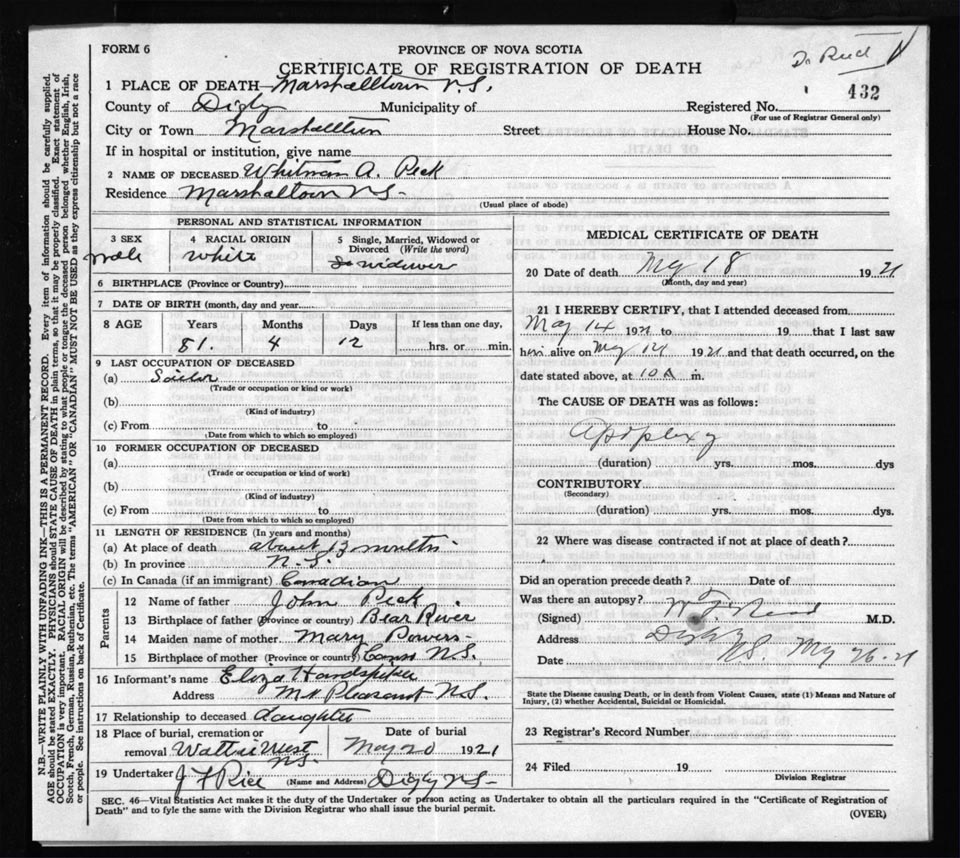 FORM 6
PROVINCE OF NOVA SCOTIA
CERTIFICATE OF REGISTRATION OF DEATH
Dr Reed
432
1 PLACE OF DEATH Marshalltown N.S.
County of Digby Municipality of
Registered No.
(For use of Registrar General only)
City or Town Marshalltown Street House No.
If in hospital or institution, give name
2 NAME OF DECEASED Whitman A. Peck
Residence Marshalltown N.S.
(Usual place of abode)
PERSONAL AND STATISTICAL INFORMATION
3 SEX
male
4 RACIAL ORIGIN
white
5 Single, Married, Widowed or Divorced (Write the word)
widower
6 BIRTHPLACE (Province or Country)
7 DATE OF BIRTH (month, day and year)
8 AGE Years Months Days If less than one day,
81. 4 12 hrs. or min.
9 LAST OCCUPATION OF DECEASED
(a) Sailor
(Trade or occupation or kind or work)
(b)
(Kind of industry)
(c) From to
(Date from which to which so employed)
10 FORMER OCCUPATION OF DECEASED
(a)
(Trade or occupation or kind of work)
(b)
(Kind of industry)
(c) From to
(Date from which to which so employed)
11 LENGTH OF RESIDENCE (In years and months)
(a) At place of death about 13 months
(b) In province N.S.
(c) In Canada (if an immigrant) Canadian
Parents
12 Name of father John Peck
13 Birthplace of father (Province or country) Bear River
14 Maiden name of mother Mary Powers
15 Birthplace of mother (Province or country) N.S.
16 Informant's name Eliza
Address Mt Pleasant N.S.
17 Relationship to deceased daughter
18 Place of burial, cremation or removal West N.S.
Date of burial
May 20 1921
19 Undertaker J F Rice (Name and Address) Digby N.S.
MEDICAL CERTIFICATE OF DEATH
20 Date of death My 18 1921
(Month, day and year)
21 I HEREBY CERTIFY, that I attended deceased from
May 14 1921 to 19 that I last saw
him alive on My 14 1921 and that death occurred, on the
date stated above, at 10 A m.
The CAUSE OF DEATH was as follows:
Apoplexy
(duration) yrs. mos. dys
CONTRIBUTORY
(Secondary)
(duration) yrs. mos. dys.
22 Where was disease contracted if not at place of death?
Did an operation precede death? Date of
Was there an autopsy?
(Signed) M.D.
Address Digby N.S.
Date My 26-21
State the Disease causing Death, or in death from Violent Causes, state (1) Means and Nature of
Injury, (2) whether Accidental, Suicidal or Homicidal.
23 Registrar's Record Number
24 Filed 19
Division Registrar
SEC. 46—Vital Statistics Act makes it the duty of the Undertaker or person acting as Undertaker to obtain all the particulars required in the "Certificate of Registration of
Death" and to fyle the same with the Division Registrar who shall issue the burial permit.
(OVER)
N.B.—WRITE PLAINLY WITH UNFADING INK—THIS IS A PERMANENT RECORD. Every item of information should be carefully supplied.
AGE should be stated EXACTLY. PHYSICIANS should STATE CAUSE OF DEATH in plain terms, so that it may be properly classified. Exact statement of
OCCUPATION is very important. RACIAL ORIGIN will be described by stating to what people or tongue the deceased person belonged whether English, Irish,
Scotch, French, German, Russian, Ruthenian, etc. The terms "AMERICAN" OR "CANADIAN" MUST NOT BE USED as they express citizenship but not a race
or people. See instructions on back of Certificate.